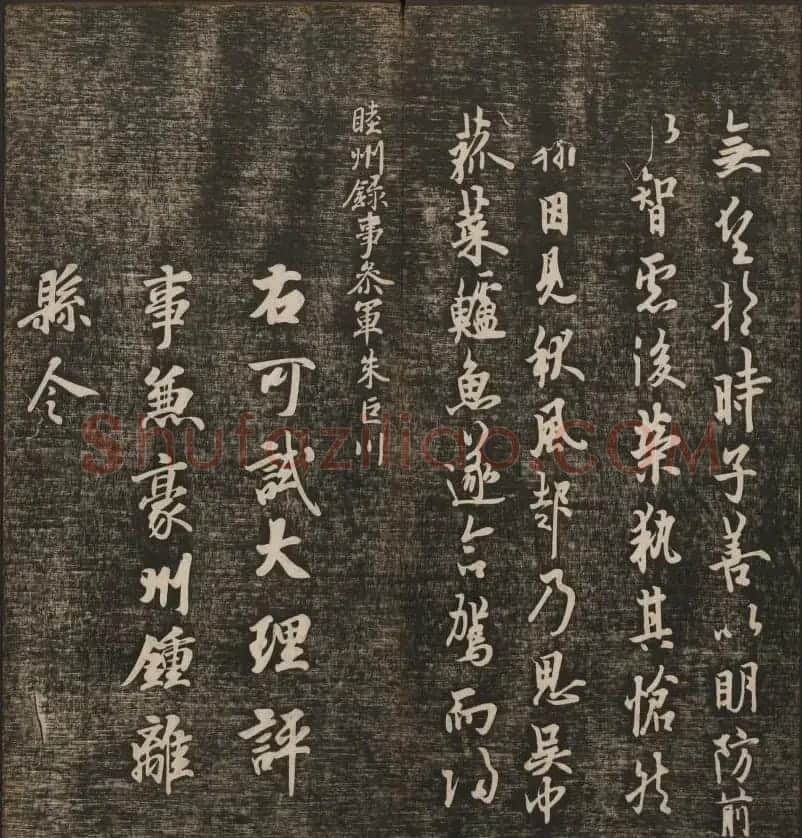 無望於時子善以明防前
以智慮後榮執其愴然
翰因見秋風起乃思吳中
菰菜鱸魚遂命駕而歸
睦州錄事參軍朱巨川
右可試大理評
事兼豪州鍾離
縣令
Shufaziliao.COM